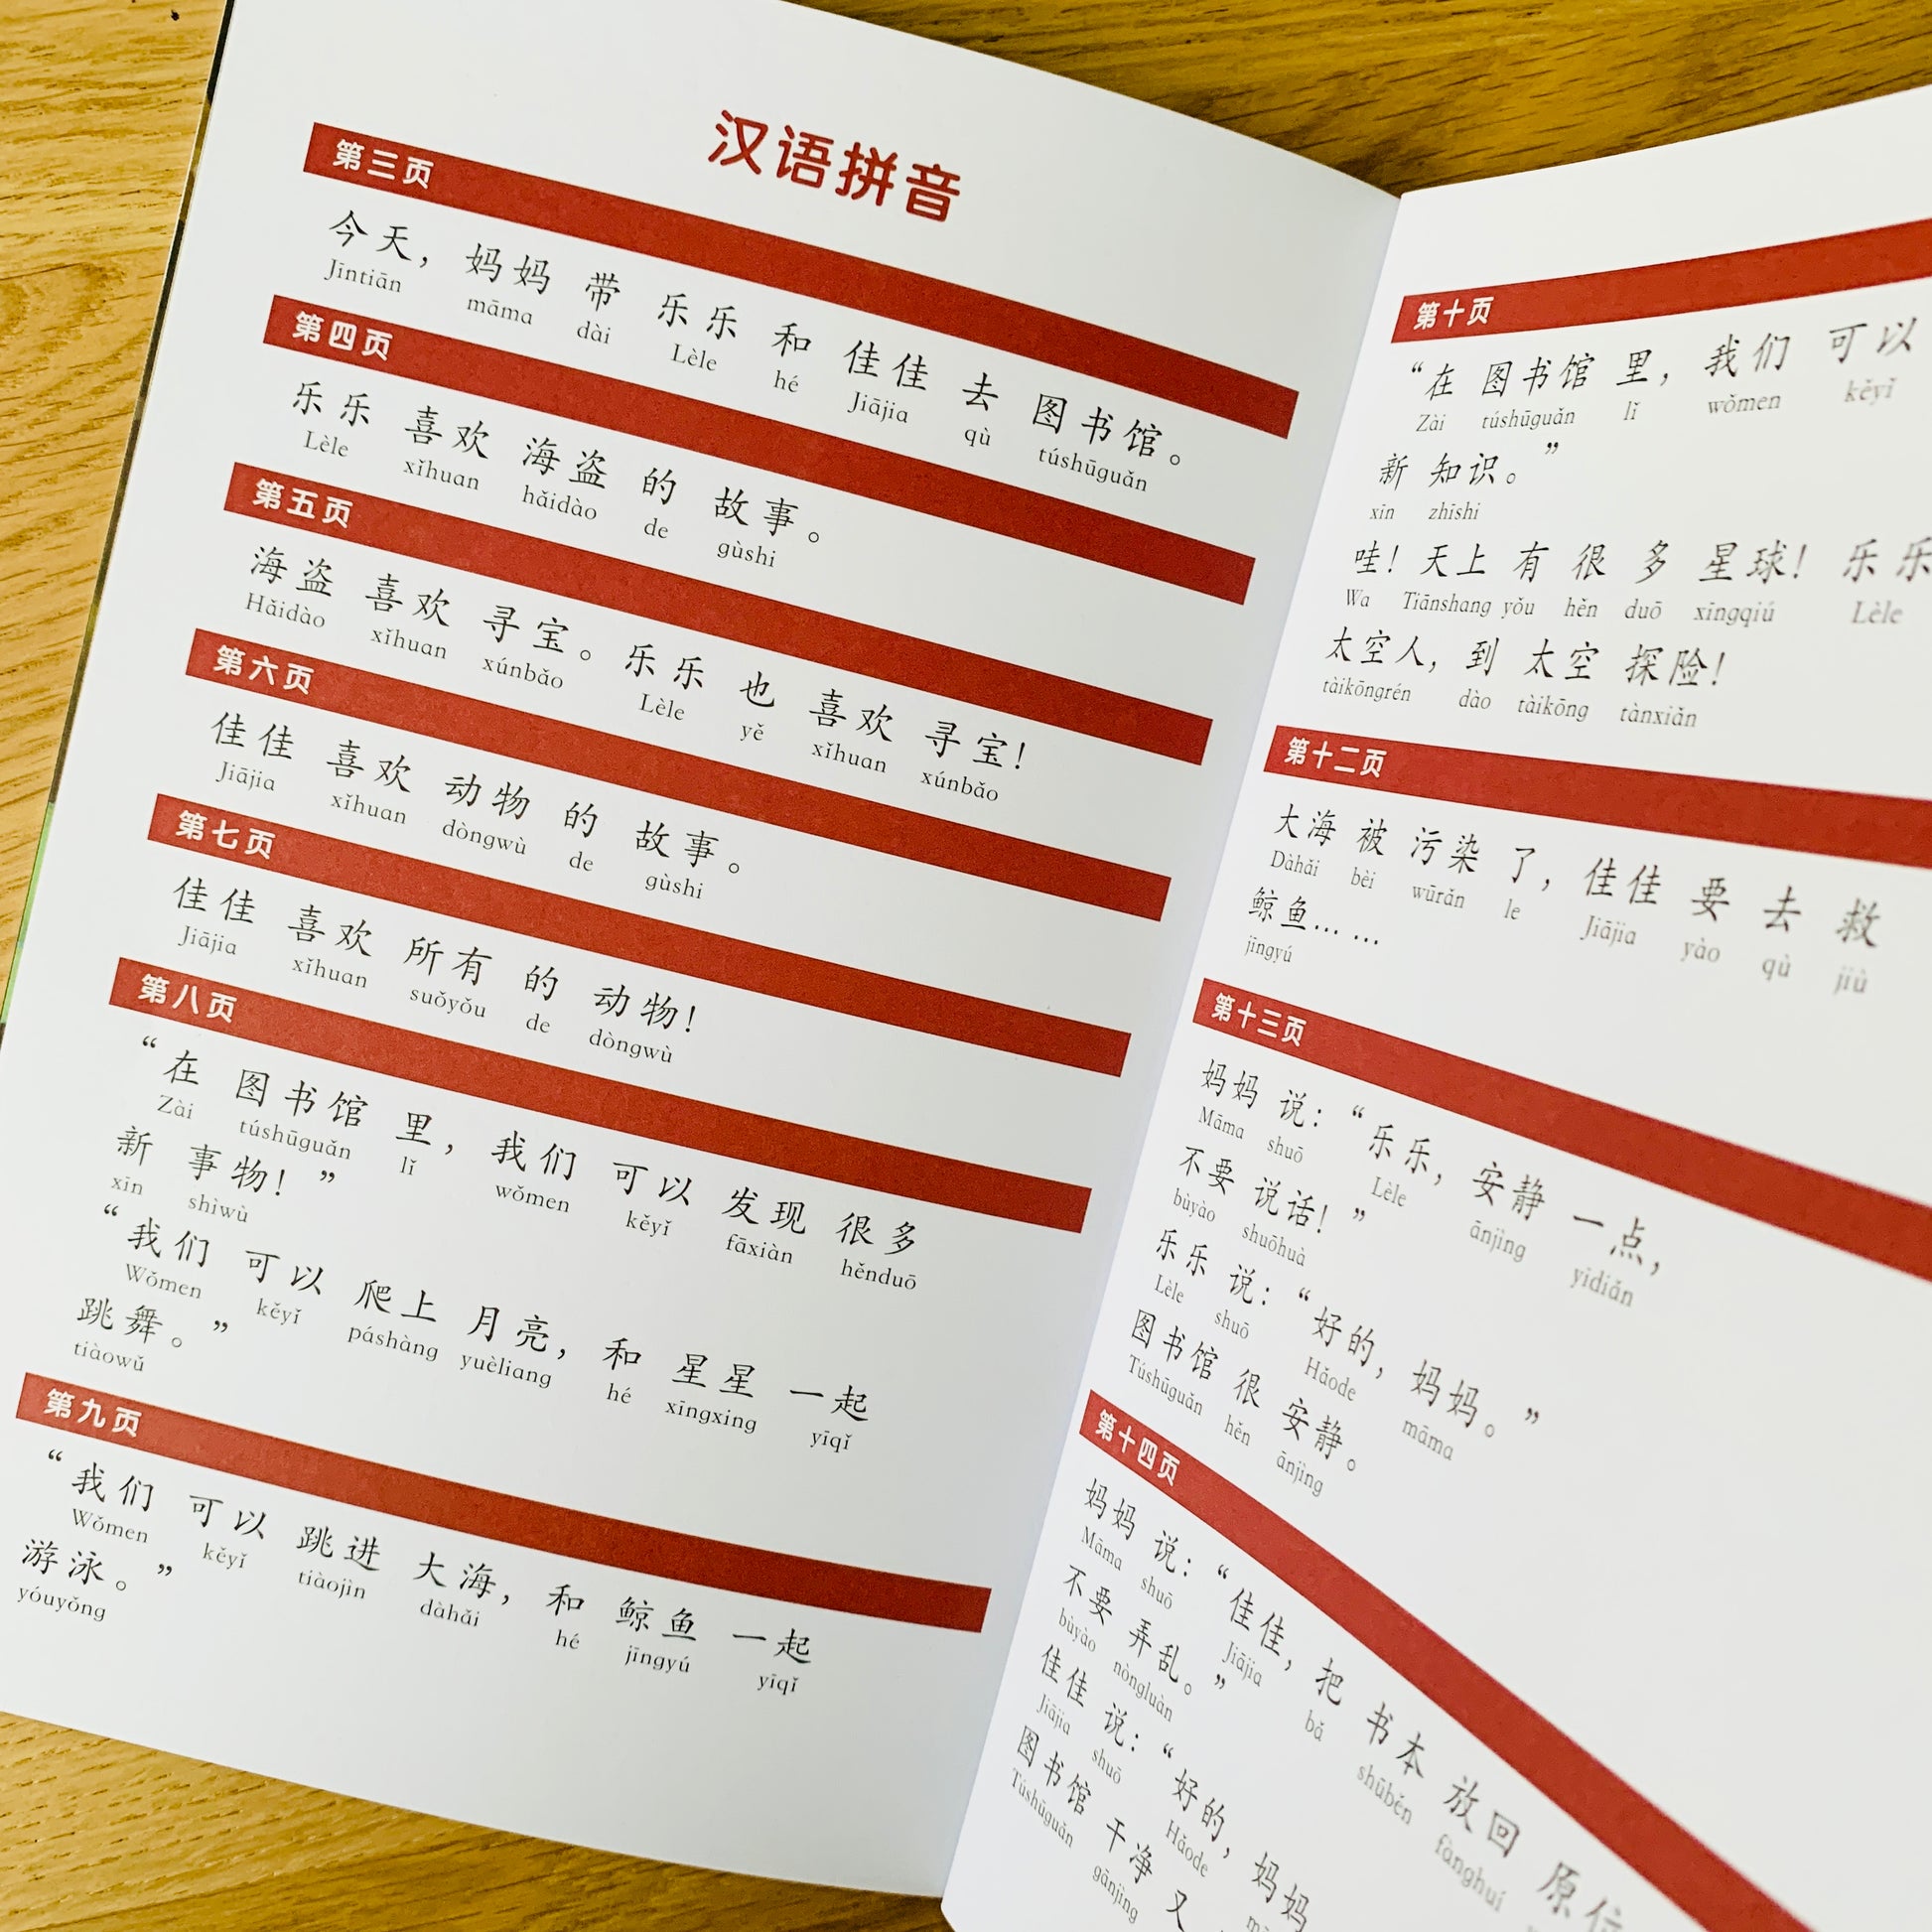 汉语拼音
第三页
今天， 妈妈 带 乐乐 和 佳佳 去 图书馆。
Jīntiān māma dài Lèle hé Jiājia qù túshūguǎn
第四页
乐乐 喜欢 海盗 的 故事。
Lèle xǐhuan hǎidào de gùshi
第五页
海盗 喜欢 寻宝。 乐乐 也 喜欢 寻宝！
Hǎidào xǐhuan xúnbǎo Lèle yě xǐhuan xúnbǎo
第六页
佳佳 喜欢 动物 的 故事。
Jiājia xǐhuan dòngwù de gùshi
第七页
佳佳 喜欢 所有 的 动物！
Jiājia xǐhuan suǒyǒu de dòngwù
第八页
“在 图书馆 里， 我们 可以 发现 很多
Zài túshūguǎn lǐ wǒmen kěyǐ fāxiàn hěnduō
新 事物！”
xīn shìwù
“我们 可以 爬上 月亮， 和 星星 一起
Wǒmen kěyǐ páshàng yuèliang hé xīngxing yīqǐ
跳舞。”
tiàowǔ
第九页
“我们 可以 跳进 大海， 和 鲸鱼 一起
Wǒmen kěyǐ tiàojìn dàhǎi hé jīngyú yīqǐ
游泳。”
yóuyǒng
第十页
“在 图书馆 里， 我们 可以
Zài túshūguǎn lǐ wǒmen kěyǐ
新 知识。”
xīn zhīshi
哇！ 天上 有 很 多 星球！ 乐乐
Wa Tiānshang yǒu hěn duō xīngqiú Lèle
太空人， 到 太空 探险！
tàikōngrén dào tàikōng tànxiǎn
第十二页
大海 被 污染 了， 佳佳 要 去 救
Dàhǎi bèi wūrǎn le Jiājia yào qù jiù
鲸鱼……
jīngyú
第十三页
妈妈 说： “乐乐， 安静 一点，
Māma shuō Lèle ānjìng yìdiǎn
不要 说话！”
bùyào shuōhuà
乐乐 说： “好的， 妈妈。”
Lèle shuō Hǎode māma
图书馆 很 安静。
Túshūguǎn hěn ānjìng
第十四页
妈妈 说： “佳佳， 把 书本 放回 原位
Māma shuō Jiājia bǎ shūběn fànghuí
不要 弄乱。”
bùyào nòngluàn
佳佳 说： “好的， 妈妈
Jiājia shuō Hǎode
图书馆 干净 又
Túshūguǎn gānjìng